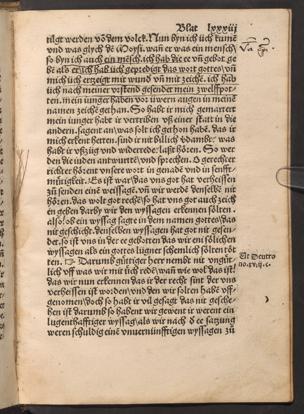 Blat lxxxiij
tilgt werden võ dem volck. Nun byn ich üch kumē
vnd was glych dē Moysi. wañ er was ein mensch/
so byn ich auch ein mēsch. ich hab die ee vñ gebot ge
hē als er. ich hab üch gepredigt das wort gottes/ vñ
mich üch erzeigt mit wund vñ mit zeichē. ich hab
üch nach meiner vrstend gesendet mein zwelfpot-
ten. mein iunger haben vor uwern augen in meine
namen zeichē gethan. So habt ir mich gemartert
mein iunger habt ir vertriben vß einer statt in die
andern. sagent an/ was solt ich gethon habē. das ir
mich erkent hetten. sind ir nit billich vdambt. was
habt ir vßzüg vnd widerrede: laßt hören. So wer
den die iuden antwurtē vnd sprechen. O gerechter
richter hör vnsere wort in genadē vnd in senfft-
mütigkeit. Es ist war das vns got hat verheissen
zü senden eine weissagē. vñ wir werdē denselbē nit
hören. das wolt got rechē/ so hat vns got auch zeich
en geben darby wir den wyssagen erkennen sölten.
also/ ob ein wyssag sagte in dem namen gottes/ das
nit geschicht. denselben wyssagen hat got nit gesen-
det. so ist vns in der ee geboten das wir ein sölichen
wyssagen als ein gottes lügner schemlich sölten töt
ten. Darumb gütiger herr nembt nit vngüt-
lich vff was wir mit üch redē/ wañ wie wol das ist/
das wir nun erkennen das ir der recht sint der vns
verheissen ist worden/ vnd den wir solten habē vff
genomen/ doch so habt ir vil gesagt das nit gesche-
hen ist darumb so habent wir gewent ir werent ein
lugenthafftiger wyssag/ als wir nach d ee satzung
weren schuldig eine vnuernünfftigen wyssagen zü
Ut Deutro
no. xv.ij. c.